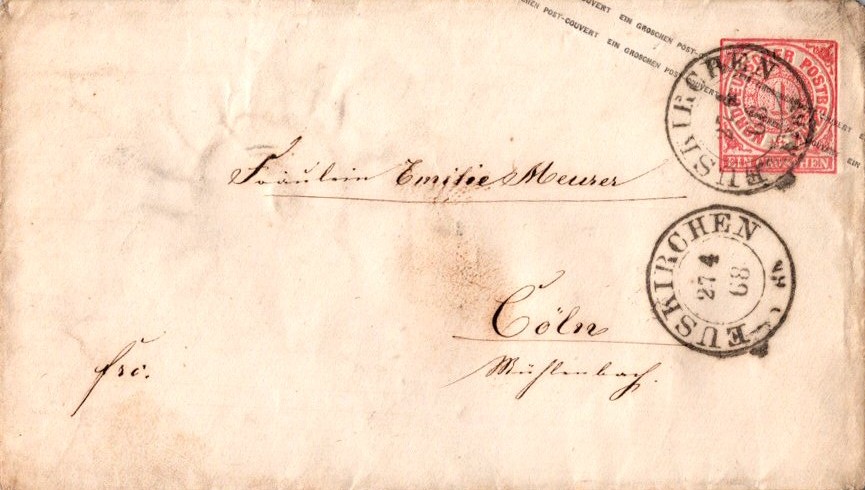 EIN GROSCHEN POST-COUVERT EIN GROSCHEN POST-COUVERT
POST-COUVERT EIN GROSCHEN POST-COUVERT
NORDDEUTSCHER POSTBEZIRK
1
EIN GROSCHEN
EUSKIRCHEN
Fräulein Emilie Meurer
EUSKIRCHEN
27 4
68
Cöln
Mühlenbach.
frc.